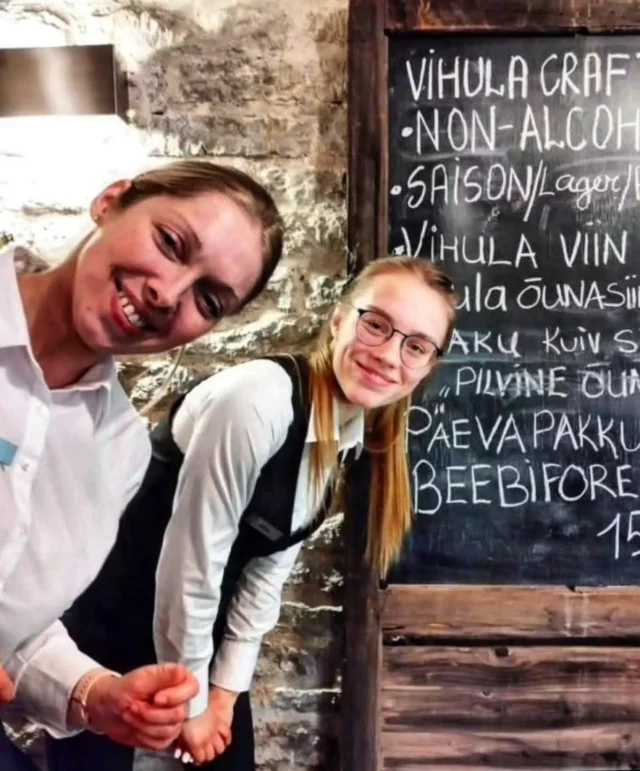 VIHULA CRAF
•NON-ALCOH
•SAISON/Lager/
VIHULA VIIN
ula ÕUNASII
AKU KUIV S
„PILVINE ÕUN
PÄEVAPAKKU
BEEBIFORE
15